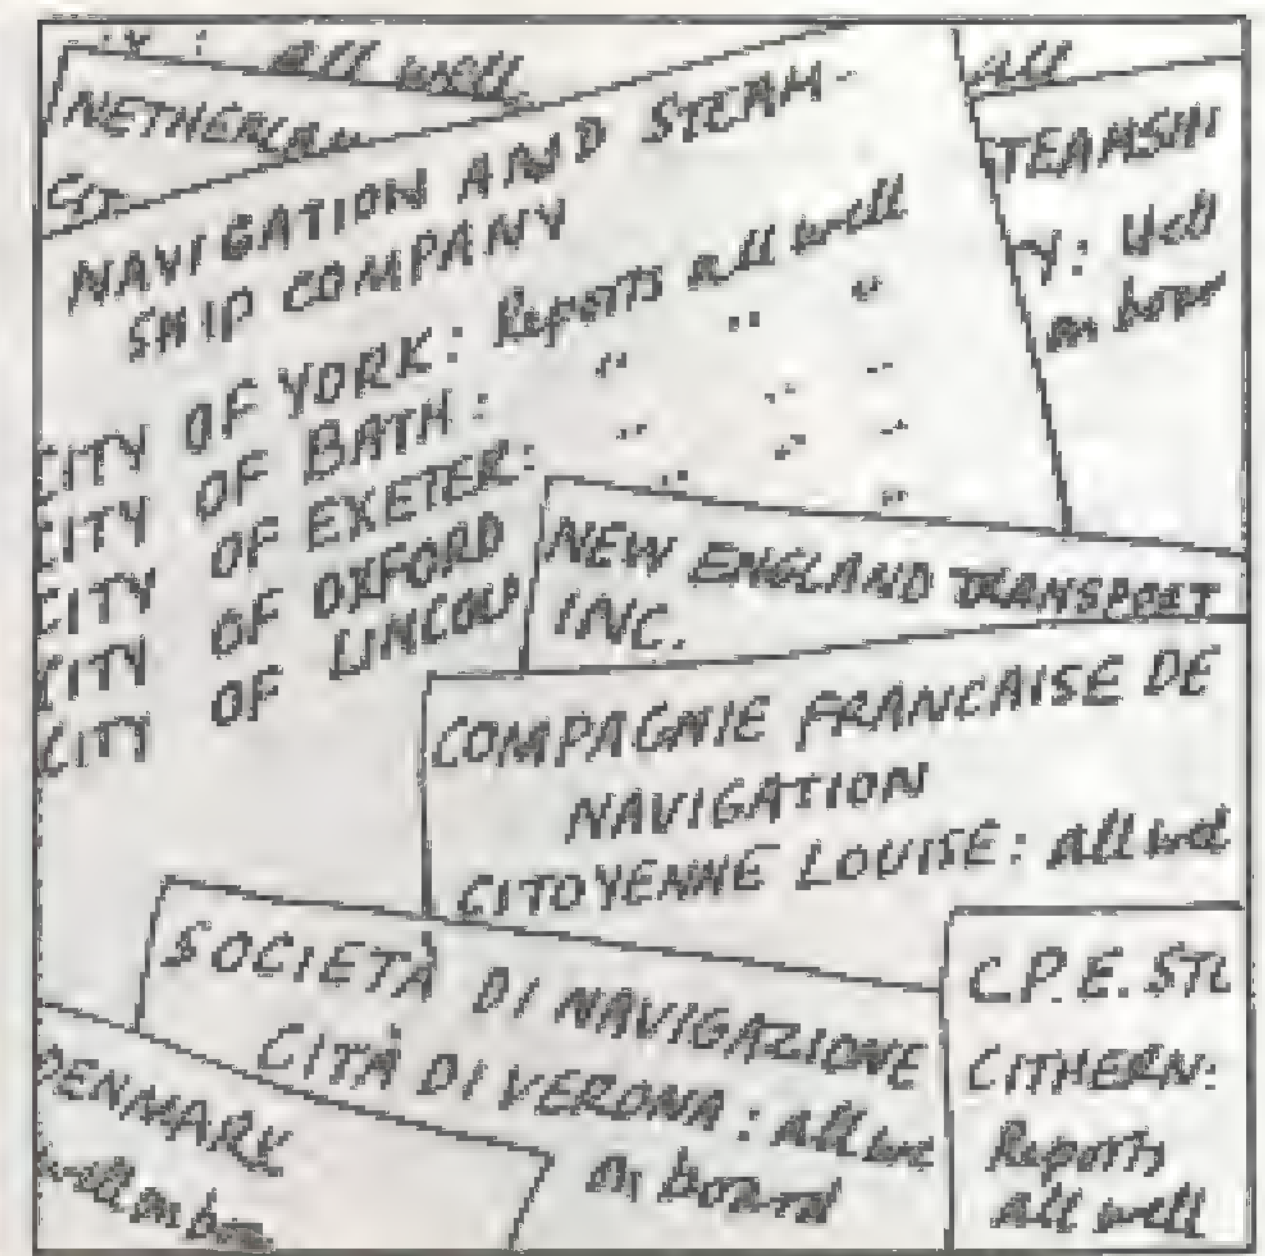 all well
NETHERLAN
NAVIGATION AND STEAM-
SHIP COMPANY
CITY OF YORK: Reports all well
CITY OF BATH: " " "
CITY OF EXETER: " " "
CITY OF OXFORD " "
CITY OF LINCOLN
All
TEAMSHI
Y: Well
on boar
NEW ENGLAND TRANSPORT
INC.
COMPAGNIE FRANCAISE DE
NAVIGATION
CITOYENNE LOUISE: All well
SOCIETÀ DI NAVIGAZIONE
CITÀ DI VERONA: All well
on board
C.P.E. ST
CITHERN:
Reports
all well
DENMARK